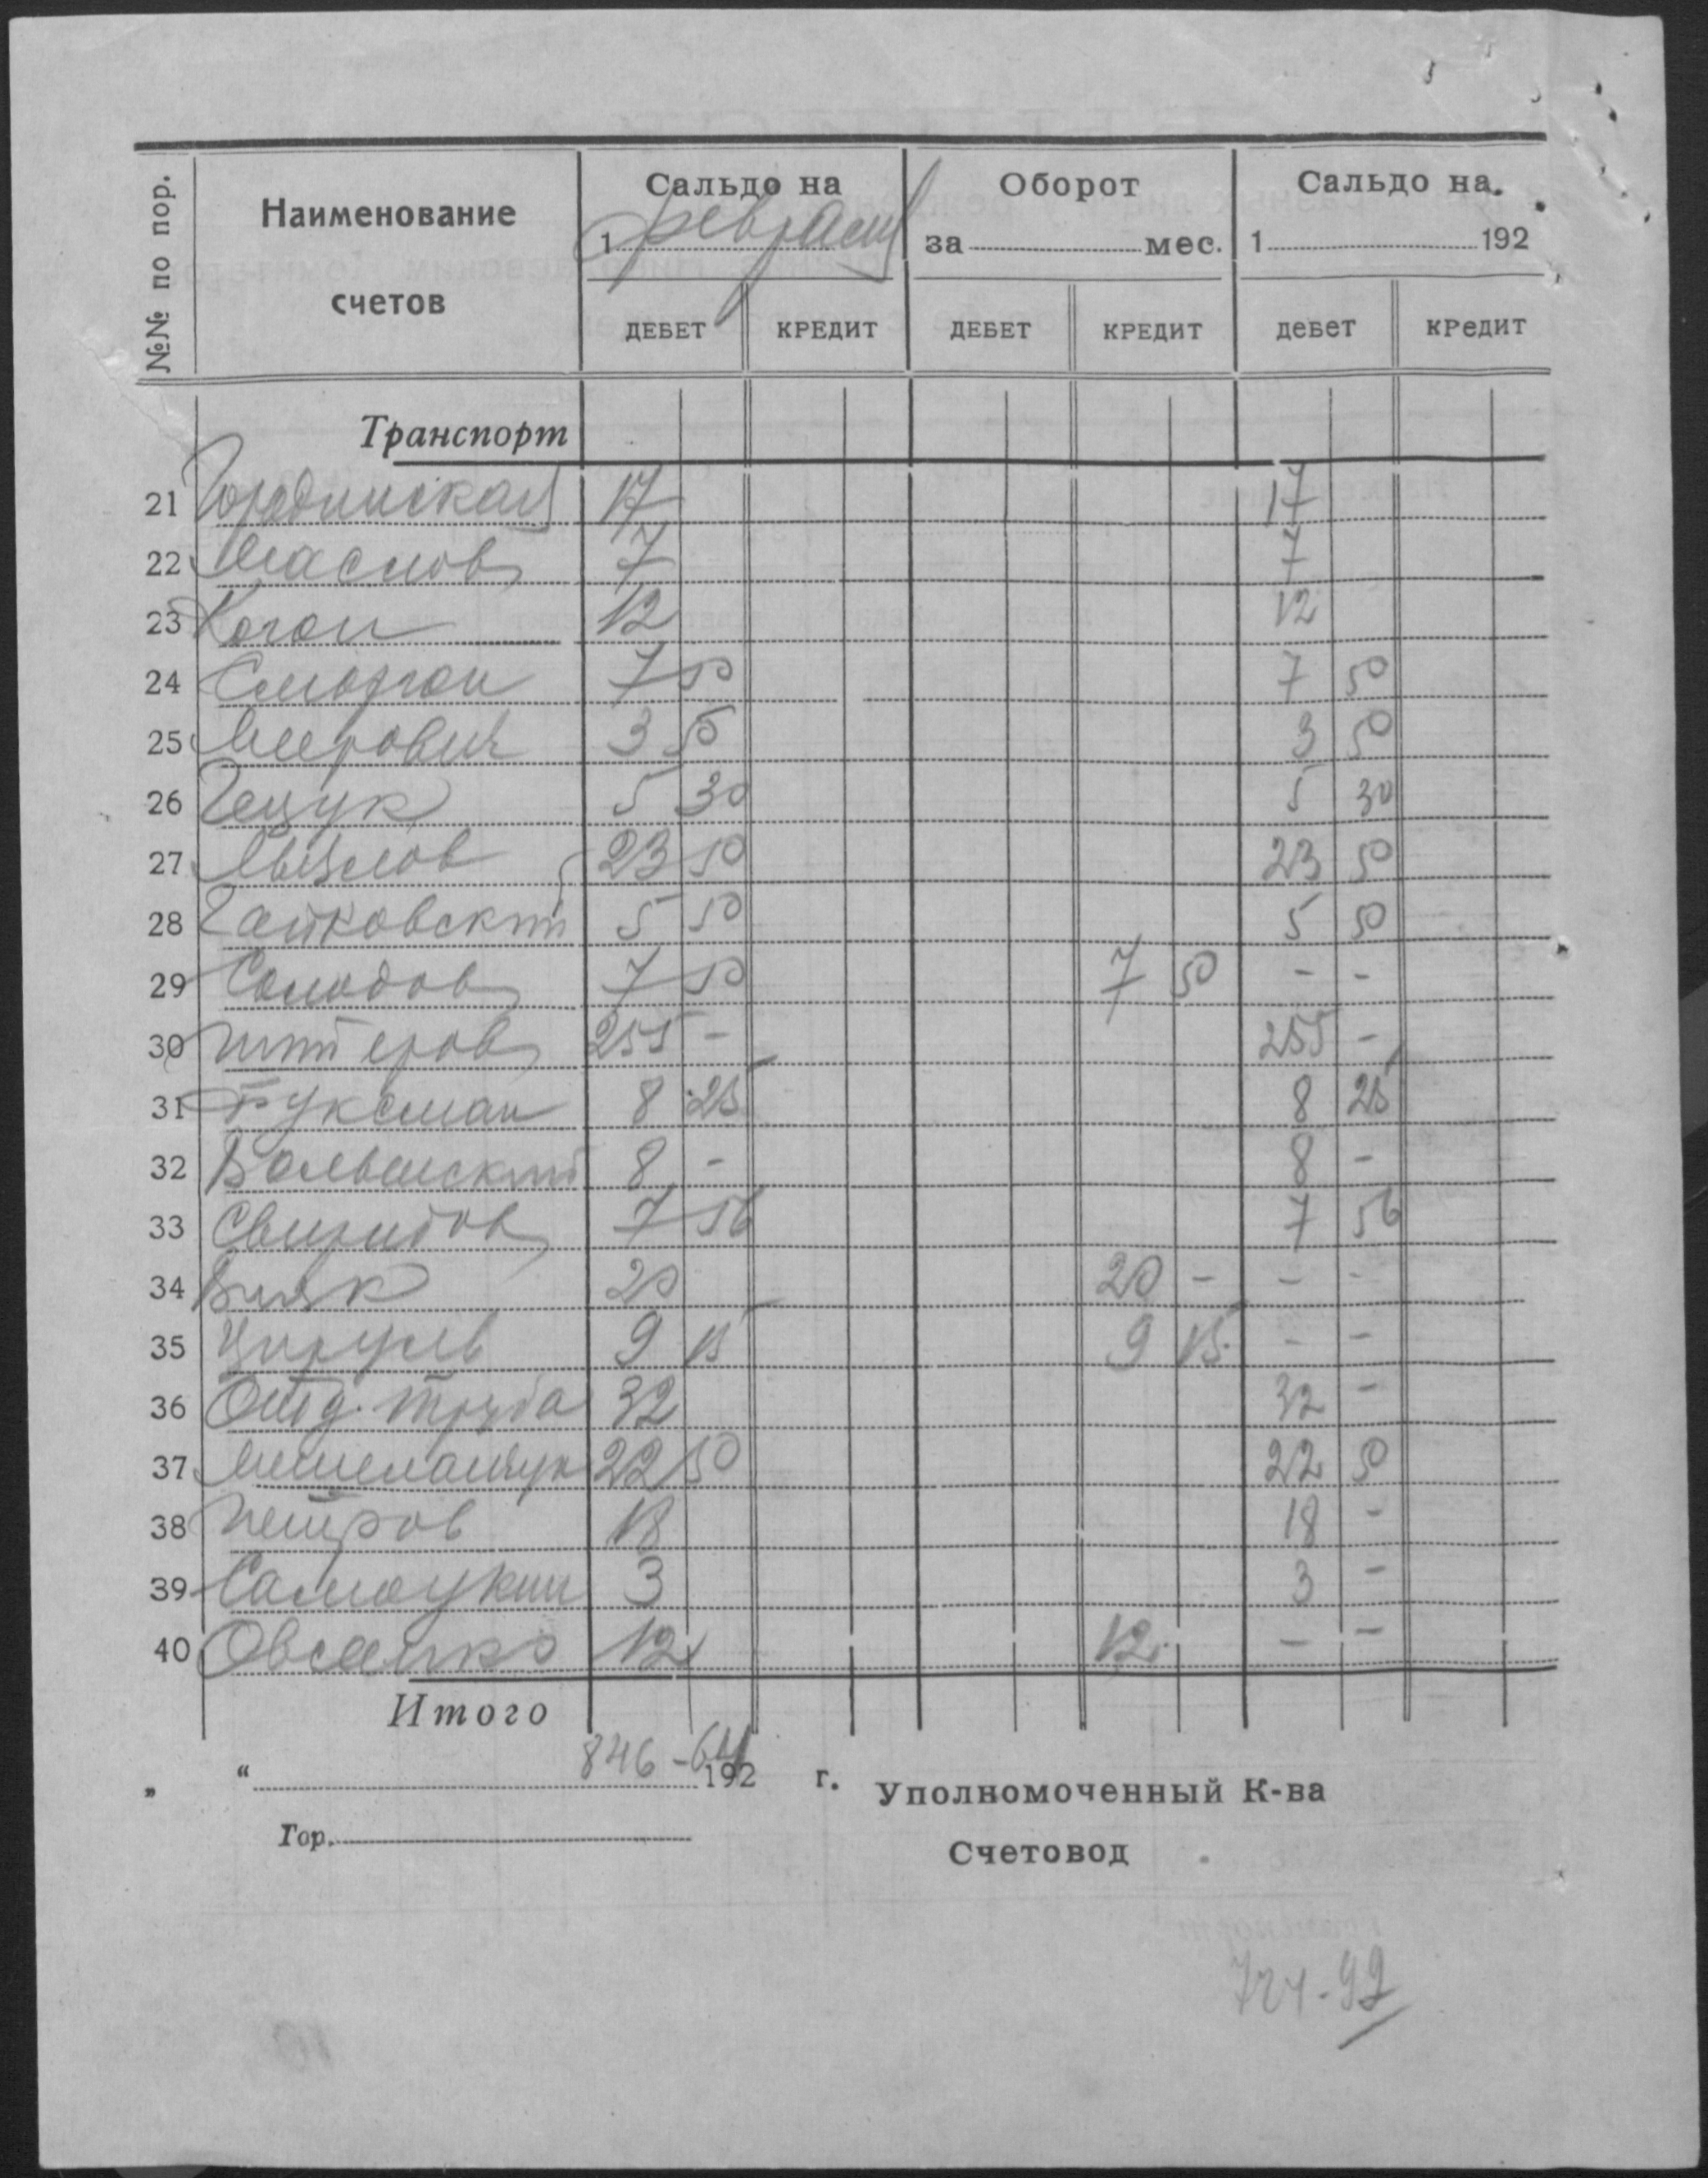 №№ по пор. Наименование счетов Сальдо на 1 февраля Оборот за мес. Сальдо на 1 192
ДЕБЕТ КРЕДИТ ДЕБЕТ КРЕДИТ дебет кредит
Транспорт
21 Гординская 17 17
22 Маслов 7 7
23 Коган 12 12
24 Сморгон 7 50 7 50
25 Меерович 3 50 3 50
26 Гецук 5 30 5 30
27 Мызлов 23 50 23 50
28 Чайковский 5 50 5 50
29 Солодов 7 50 7 50 - -
30 255 - 255 -
31 Буксман 8 25 8 25
32 Вольвинский 8 - 8 -
33 Свиридов 7 56 7 56
34 20 20 - - -
35 Цируль 9 15 9 15 - -
36 Отд. труда 32 32 -
37 22 50 22 50
38 Петров 18 18 -
39 Самоукин 3 3 -
40 Овсеенко 12 12 - -
Итого
846-64
„ “ 192 г. Уполномоченный К-ва
Гор.
Счетовод
724-92